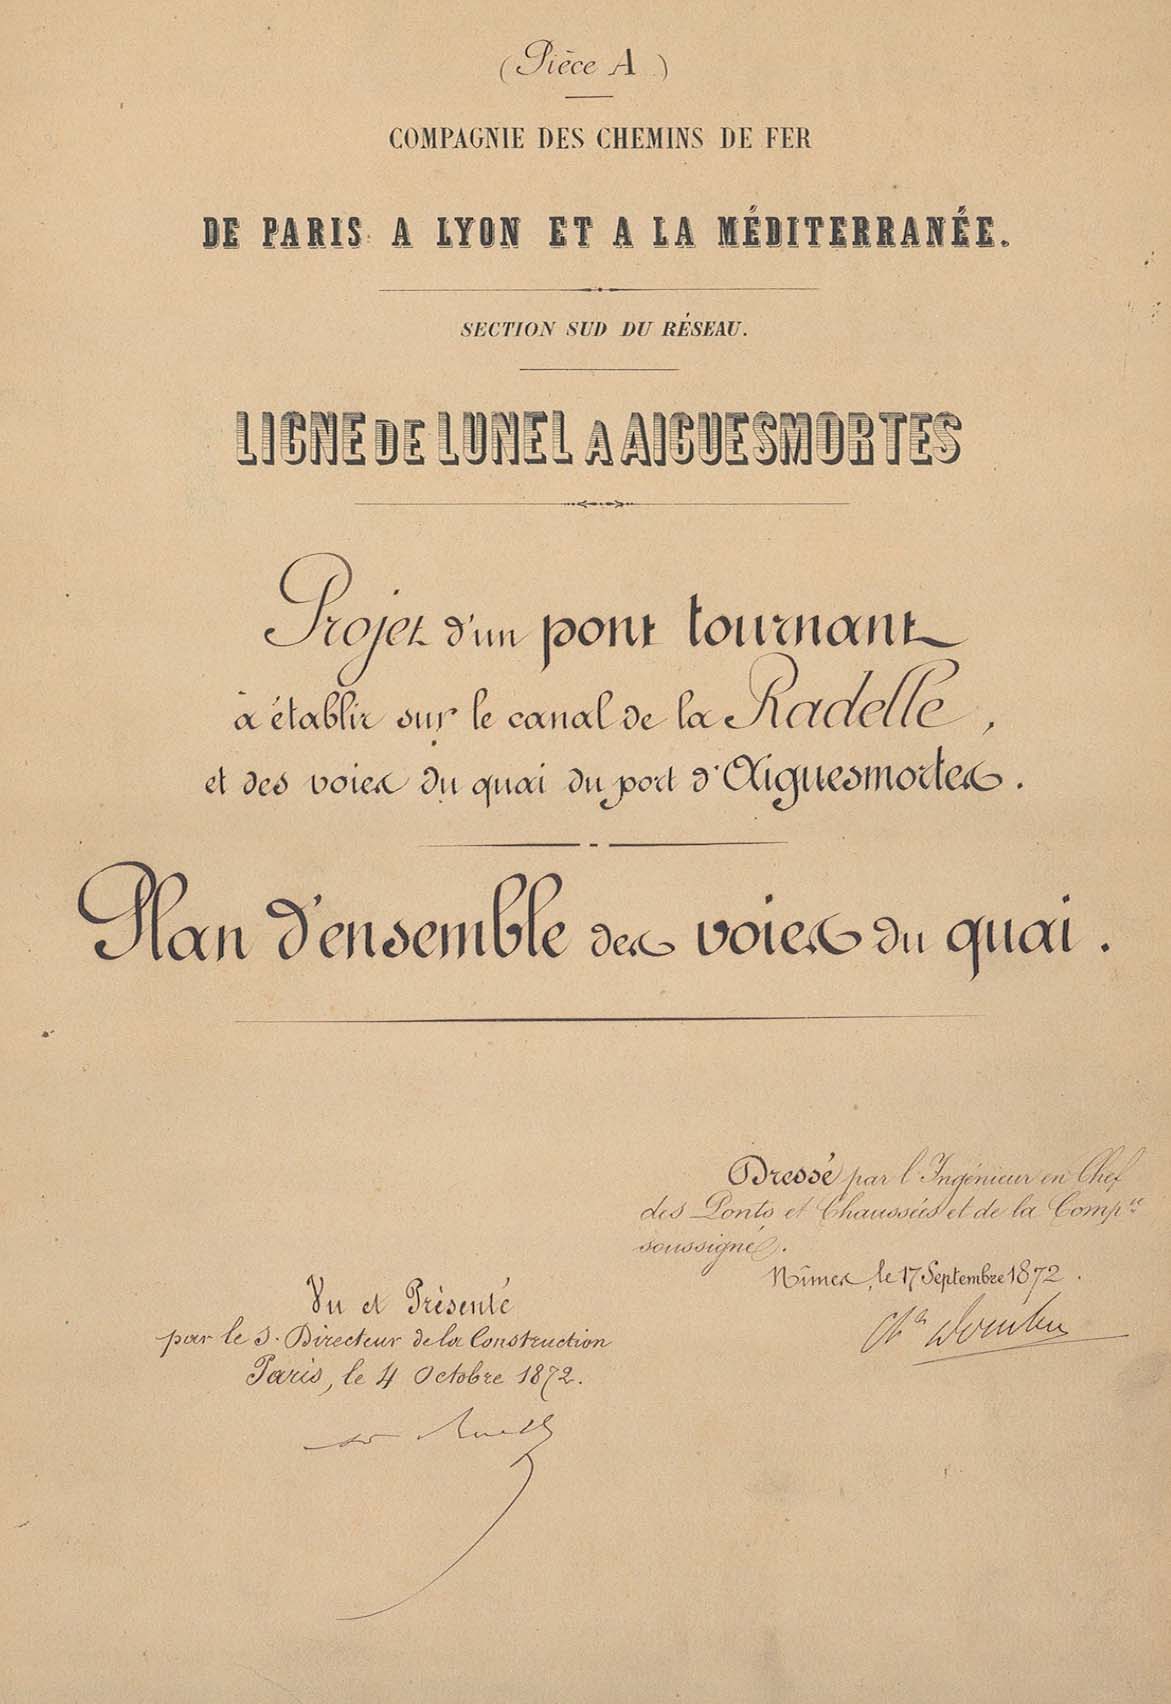 (Pièce A)
COMPAGNIE DES CHEMINS DE FER
DE PARIS A LYON ET A LA MÉDITERRANÉE.
SECTION SUD DU RÉSEAU.
LIGNE DE LUNEL A AIGUESMORTES
Projet d'un pont tournant
à établir sur le canal de la Radelle,
et des voies du quai du port d'Aiguesmortes.
Plan d'ensemble des voies du quai.
Dressé par l'Ingénieur en Chef
des Ponts et Chaussées et de la Comp.ie
soussigné.
Nîmes, le 17 Septembre 1872.
Vu et Présenté
par le S. Directeur de la Construction
Paris, le 4 Octobre 1872.